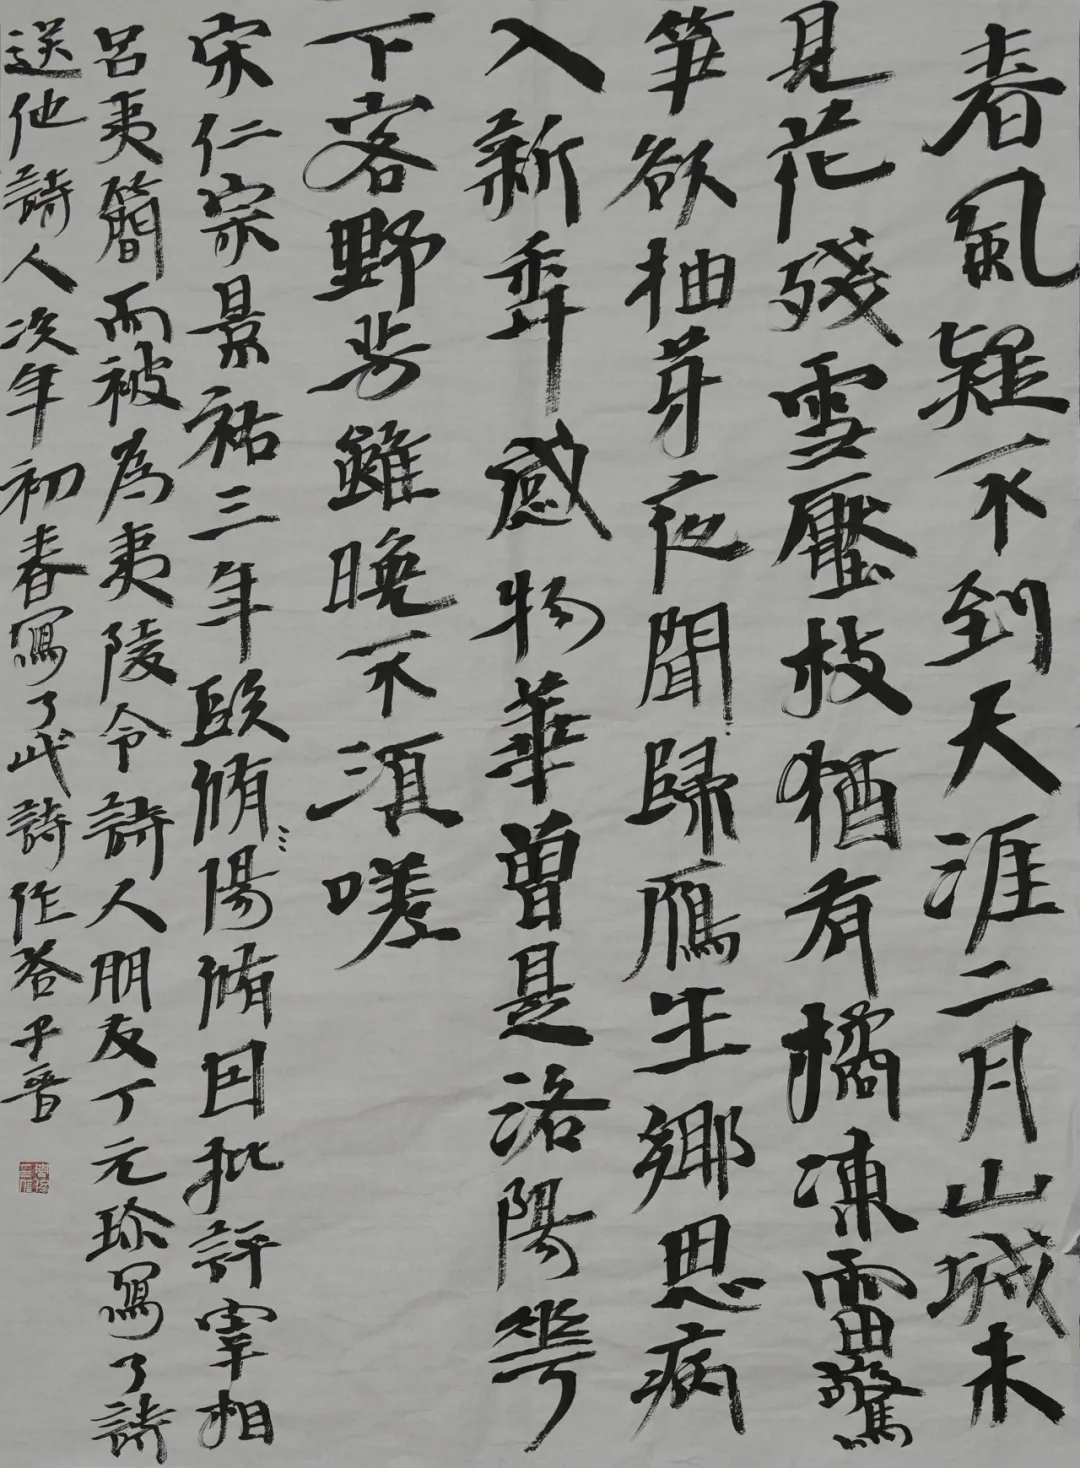 春風疑不到天涯二月山城未
見花殘雪壓枝猶有橘凍雷驚
筍欲抽芽夜聞歸雁生鄉思病
入新年感物華曾是洛陽花
下客野芳雖晚不須嗟
宋仁宗景祐三年歐脩陽脩因批評宰相
呂夷簡而被為夷陵令詩人朋友丁元珍寫了詩
送他詩人次年初春寫了此詩作答子晉